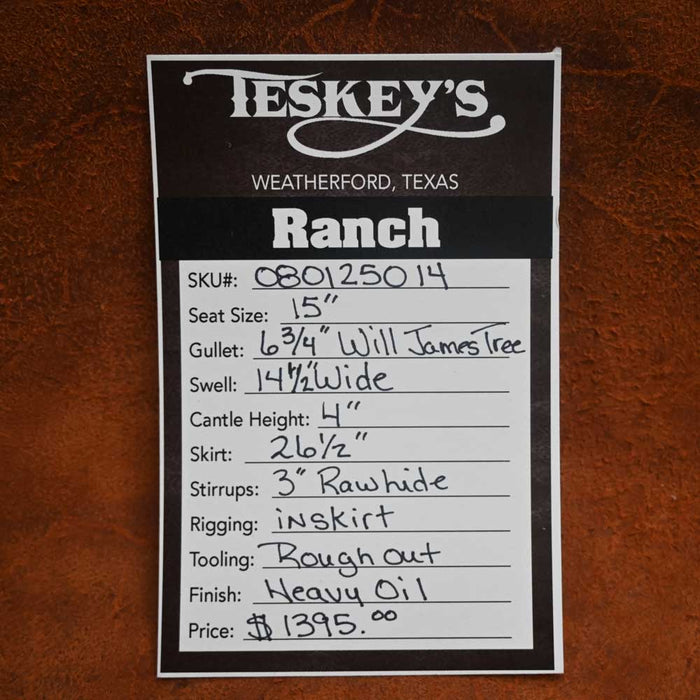 TESKEY'S
WEATHERFORD, TEXAS
Ranch
SKU#: 080125014
Seat Size: 15"
Gullet: 6 3/4" Will James Tree
Swell: 14 1/2" Wide
Cantle Height: 4"
Skirt: 26 1/2"
Stirrups: 3" Rawhide
Rigging: inskirt
Tooling: Rough out
Finish: Heavy Oil
Price: $1395.00